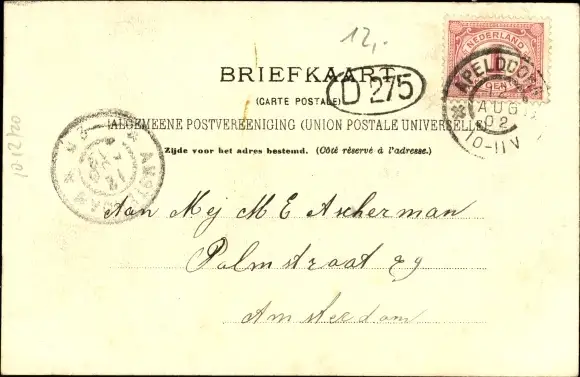 12,-
NEDERLAND
1
CENT
BRIEFKAART
(CARTE POSTALE)
D 275
APELDOORN
12
AUG
02
10-11V
ALGEMEENE POSTVEREENIGING (UNION POSTALE UNIVERSELLE)
Zijde voor het adres bestemd. (Côté réservé à l'adresse.)
10 12/20
Aan Mej M E Ascherman
Palmstraat 29
Amsterdam